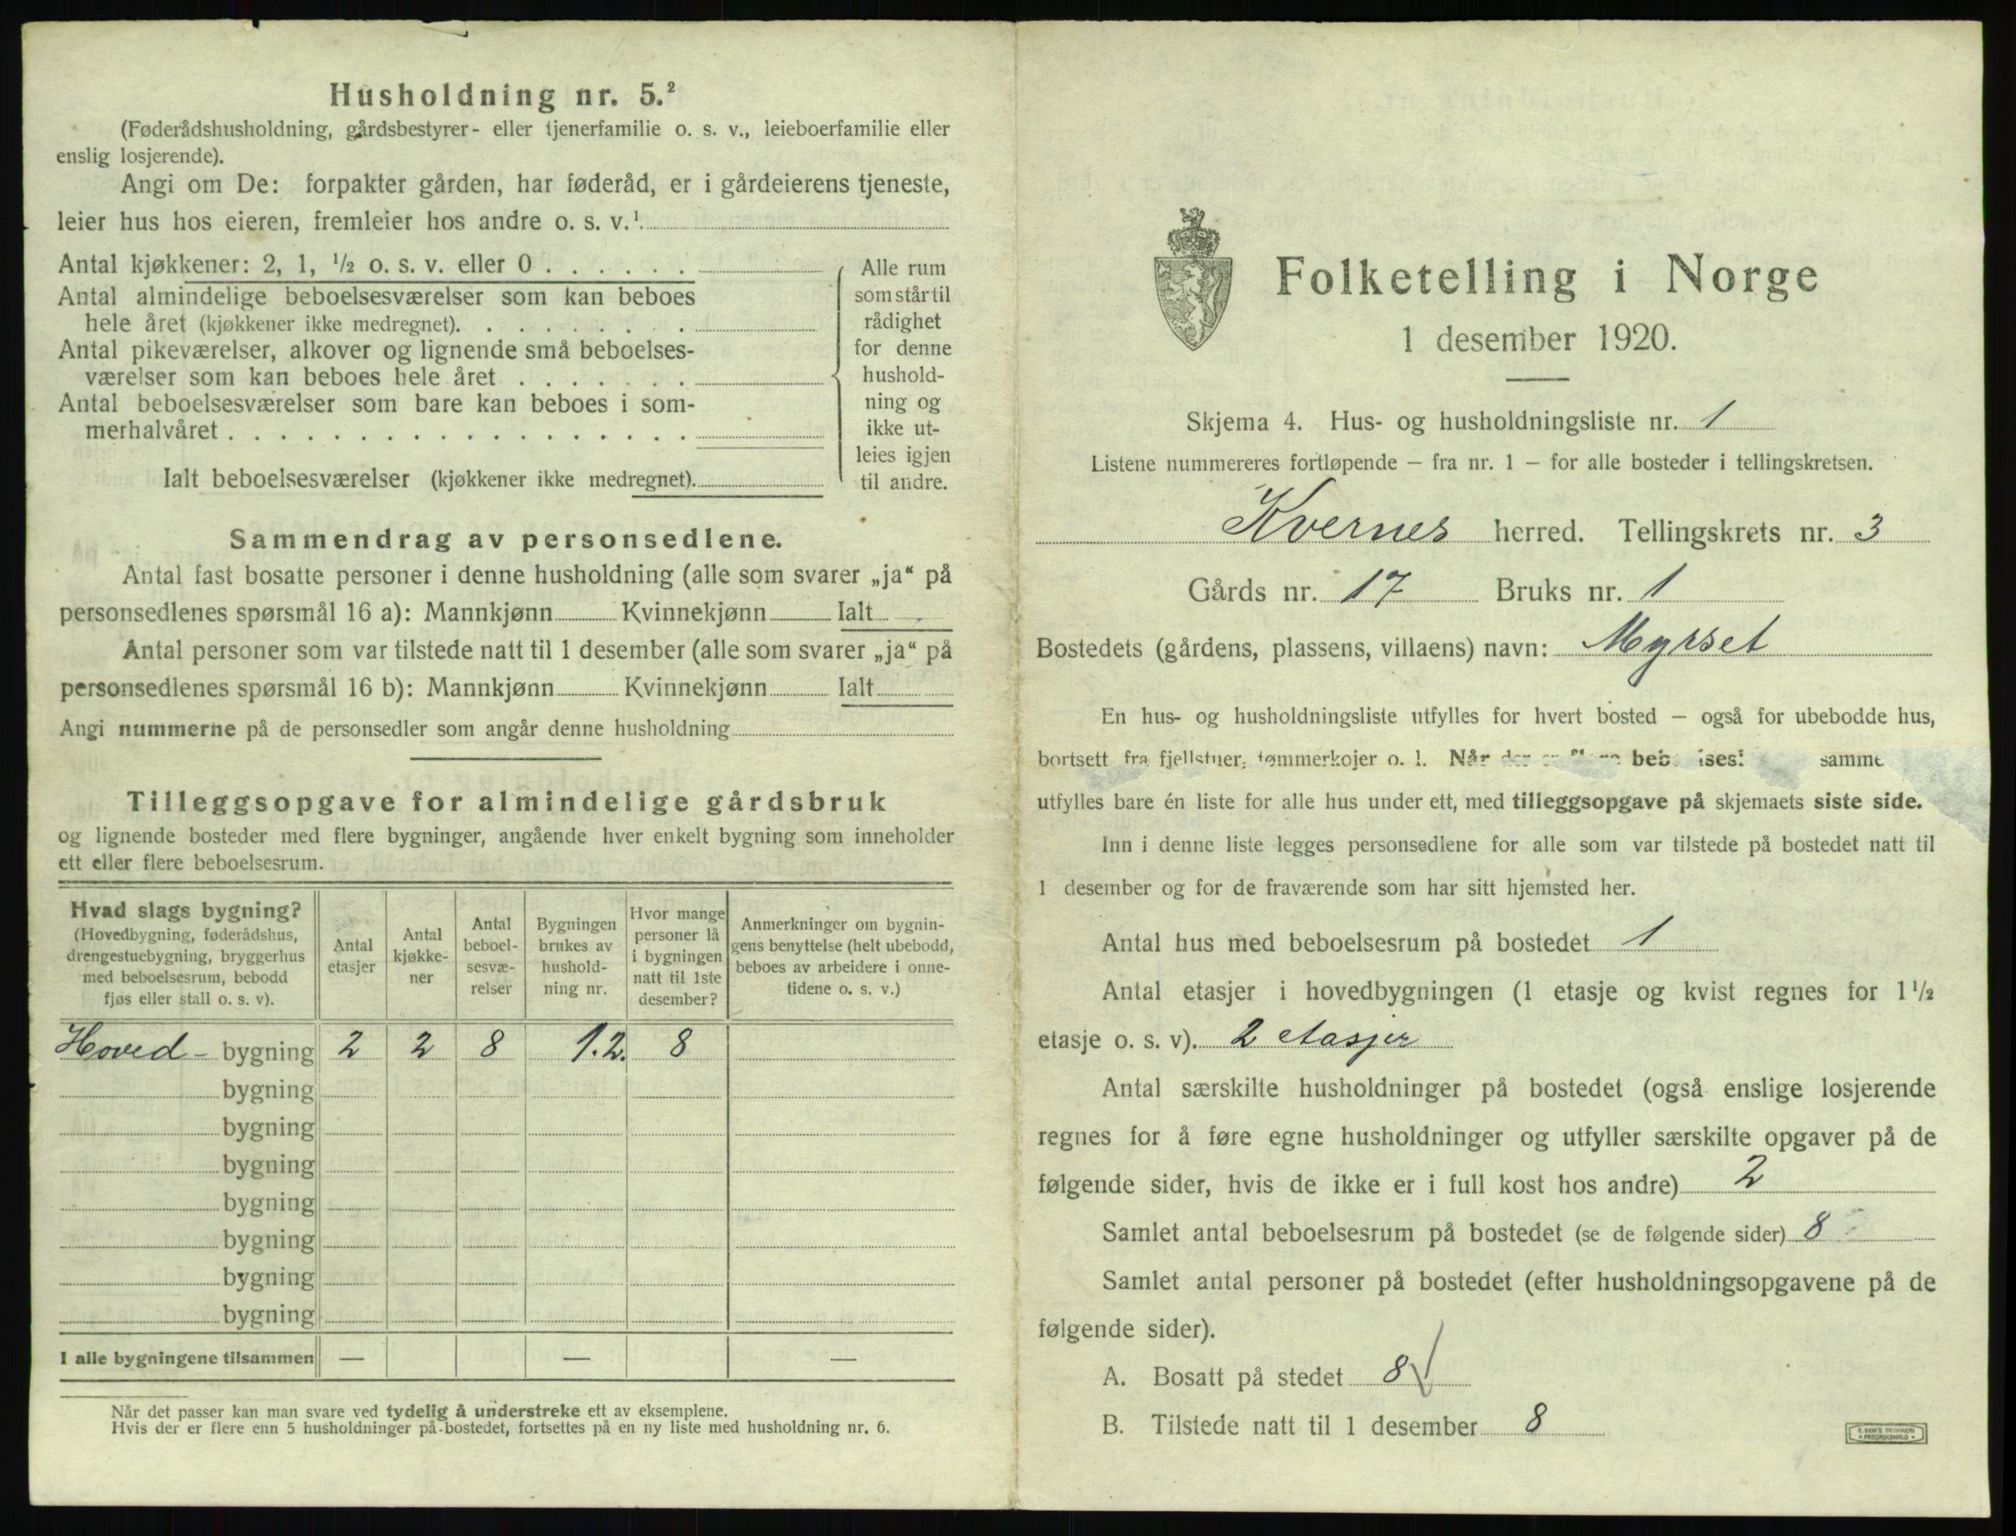 Husholdning nr. 5.²
(Føderådshusholdning, gårdsbestyrer- eller tjenerfamilie o. s. v., leieboerfamilie eller
enslig losjerende).
Angi om De: forpakter gården, har føderåd, er i gårdeierens tjeneste,
leier hus hos eieren, fremleier hos andre o. s. v.¹
Antal kjøkkener: 2, 1, ½ o. s. v. eller 0 . . . . . .
Antal almindelige beboelsesværelser som kan beboes
hele året (kjøkkener ikke medregnet). . . . . . . . .
Antal pikeværelser, alkover og lignende små beboelses-
værelser som kan beboes hele året . . . . . . .
Antal beboelsesværelser som bare kan beboes i som-
merhalvåret . . . . . . . . . . . . . . . . . .
Ialt beboelsesværelser (kjøkkener ikke medregnet).
Alle rum
som står til
rådighet
for denne
hushold-
ning og
ikke ut-
leies igjen
til andre.
Sammendrag av personsedlene.
Antal fast bosatte personer i denne husholdning (alle som svarer „ja“ på
personsedlenes spørsmål 16 a): Mannkjønn Kvinnekjønn Ialt
Antal personer som var tilstede natt til 1 desember (alle som svarer „ja“ på
personsedlenes spørsmål 16 b): Mannkjønn Kvinnekjønn Ialt
Angi nummerne på de personsedler som angår denne husholdning
Tilleggsopgave for almindelige gårdsbruk
og lignende bosteder med flere bygninger, angående hver enkelt bygning som inneholder
ett eller flere beboelsesrum.
Hvad slags bygning?
(Hovedbygning, føderådshus,
drengestuebygning, bryggerhus
med beboelsesrum, bebodd
fjøs eller stall o. s. v).
Antal
etasjer
Antal
kjøkke-
ner
Antal
beboel-
sesvæ-
relser
Bygningen
brukes av
hushold-
ning nr.
Hvor mange
personer lå
i bygningen
natt til 1ste
desember?
Anmerkninger om bygnin-
gens benyttelse (helt ubebodd,
beboes av arbeidere i onne-
tidene o. s. v.)
Hoved- bygning 2 2 8 1.2. 8
bygning
bygning
bygning
bygning
bygning
bygning
bygning
I alle bygningene tilsammen — — —
Når det passer kan man svare ved tydelig å understreke ett av eksemplene.
Hvis der er flere enn 5 husholdninger på bostedet, fortsettes på en ny liste med husholdning nr. 6.
Folketelling i Norge
1 desember 1920.
Skjema 4. Hus- og husholdningsliste nr. 1
Listene nummereres fortløpende — fra nr. 1 — for alle bosteder i tellingskretsen.
Kvernes herred. Tellingskrets nr. 3
Gårds nr. 17 Bruks nr. 1
Bostedets (gårdens, plassens, villaens) navn: Myrset
En hus- og husholdningsliste utfylles for hvert bosted — også for ubebodde hus,
bortsett fra fjellstuer, tømmerkojer o. l. Når der er flere samme
utfylles bare én liste for alle hus under ett, med tilleggsopgave på skjemaets siste side.
Inn i denne liste legges personsedlene for alle som var tilstede på bostedet natt til
1 desember og for de fraværende som har sitt hjemsted her.
Antal hus med beboelsesrum på bostedet 1
Antal etasjer i hovedbygningen (1 etasje og kvist regnes for 1½
etasje o. s. v). 2 etasjer
Antal særskilte husholdninger på bostedet (også enslige losjerende
regnes for å føre egne husholdninger og utfyller særskilte opgaver på de
følgende sider, hvis de ikke er i full kost hos andre) 2
Samlet antal beboelsesrum på bostedet (se de følgende sider) 8
Samlet antal personer på bostedet (efter husholdningsopgavene på de
følgende sider).
A. Bosatt på stedet 8 √
B. Tilstede natt til 1 desember 8